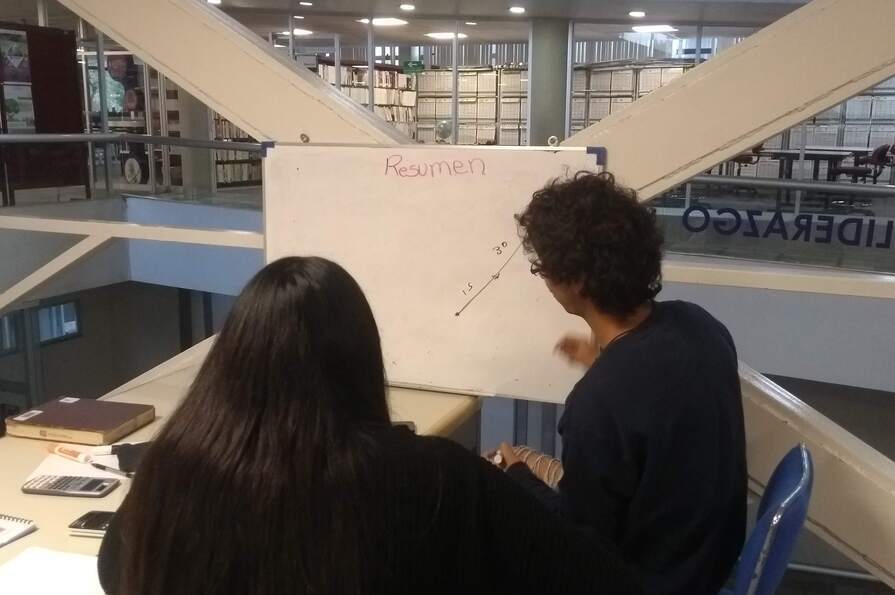 Resumen
30
15
LIDERAZGO